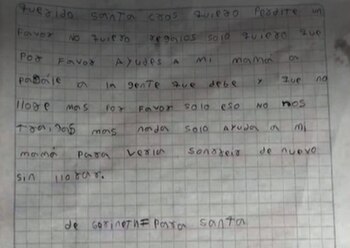 querida santa cros quiero Perdite un
favor no quiero regalos solo quiero que
Por favor Ayudes A mi mama a
pagale a la gente que debe y que no
llore mas Por Favor solo eso no
mas nada solo Ayuda a mi
mamá para verla sonreir de nuevo
sin llorar.
de corineth=para santa